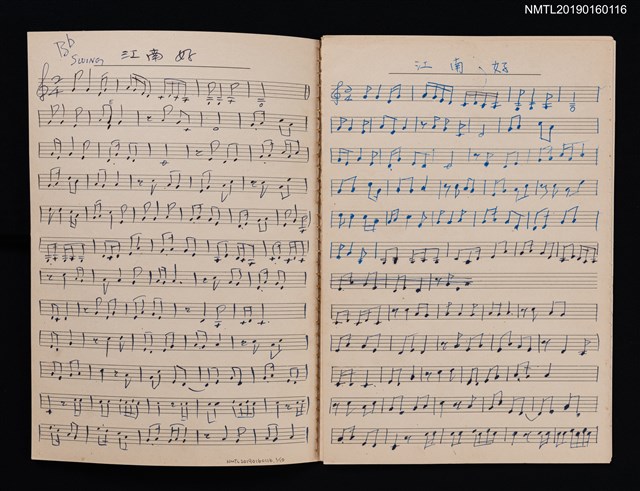 NMTL20190160116
Bb
SWING 江南好
江南好